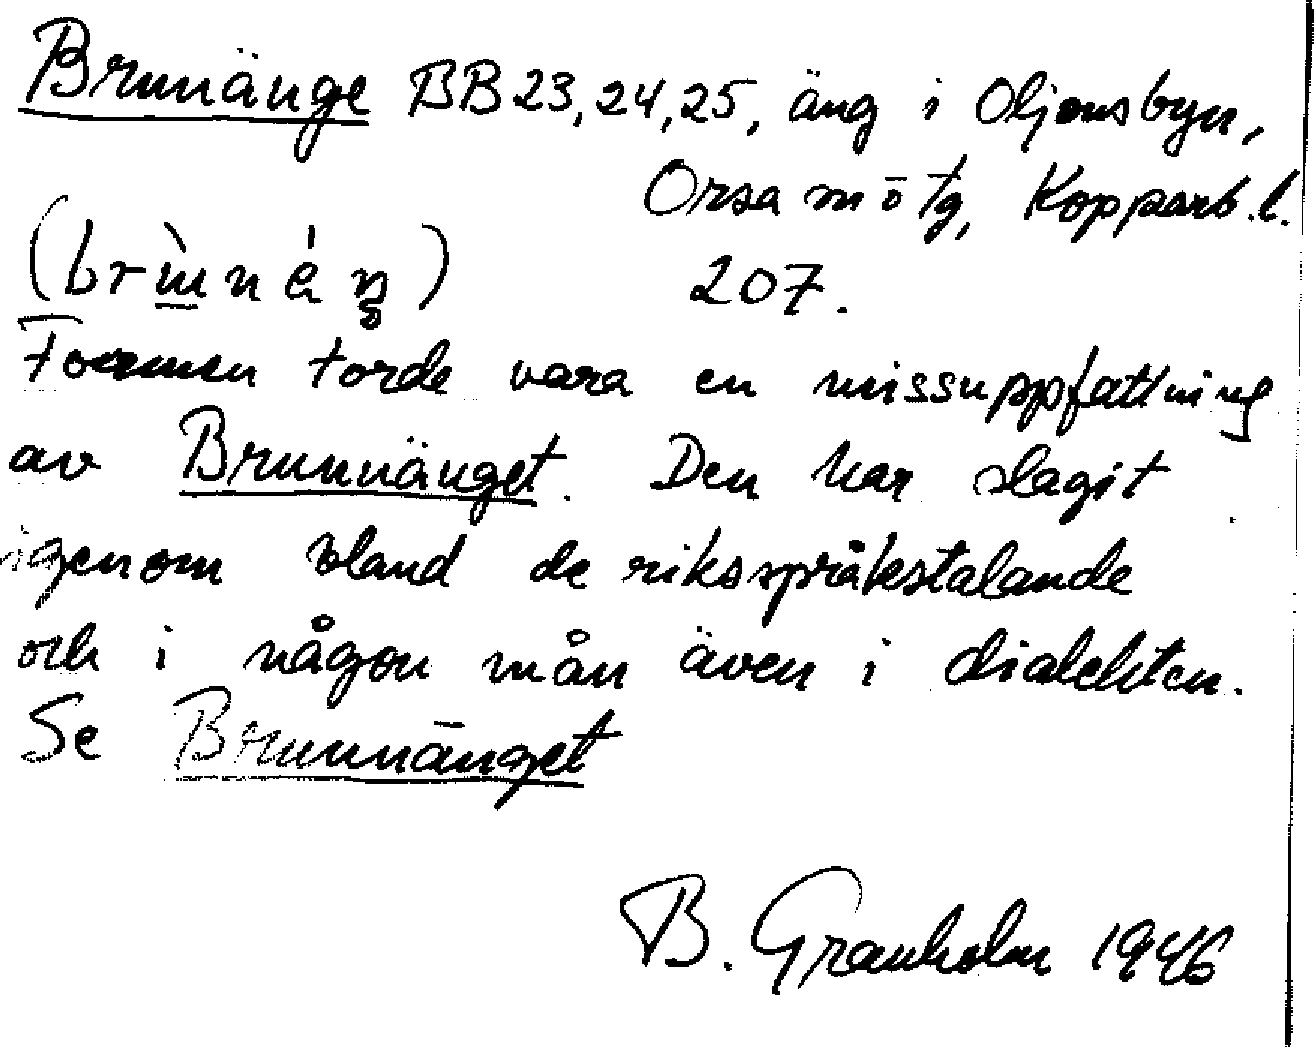 Brunänge BB 23, 24, 25, äng i Oljonsbyn,
Orsa sn o tg, Kopparb. l.
207.
Formen torde vara en missuppfattning
av Brunnänget. Den har slagit
igenom bland de riksspråkstalande
och i någon mån även i dialekten.
Se Brunnänget
B. Granholm 1946